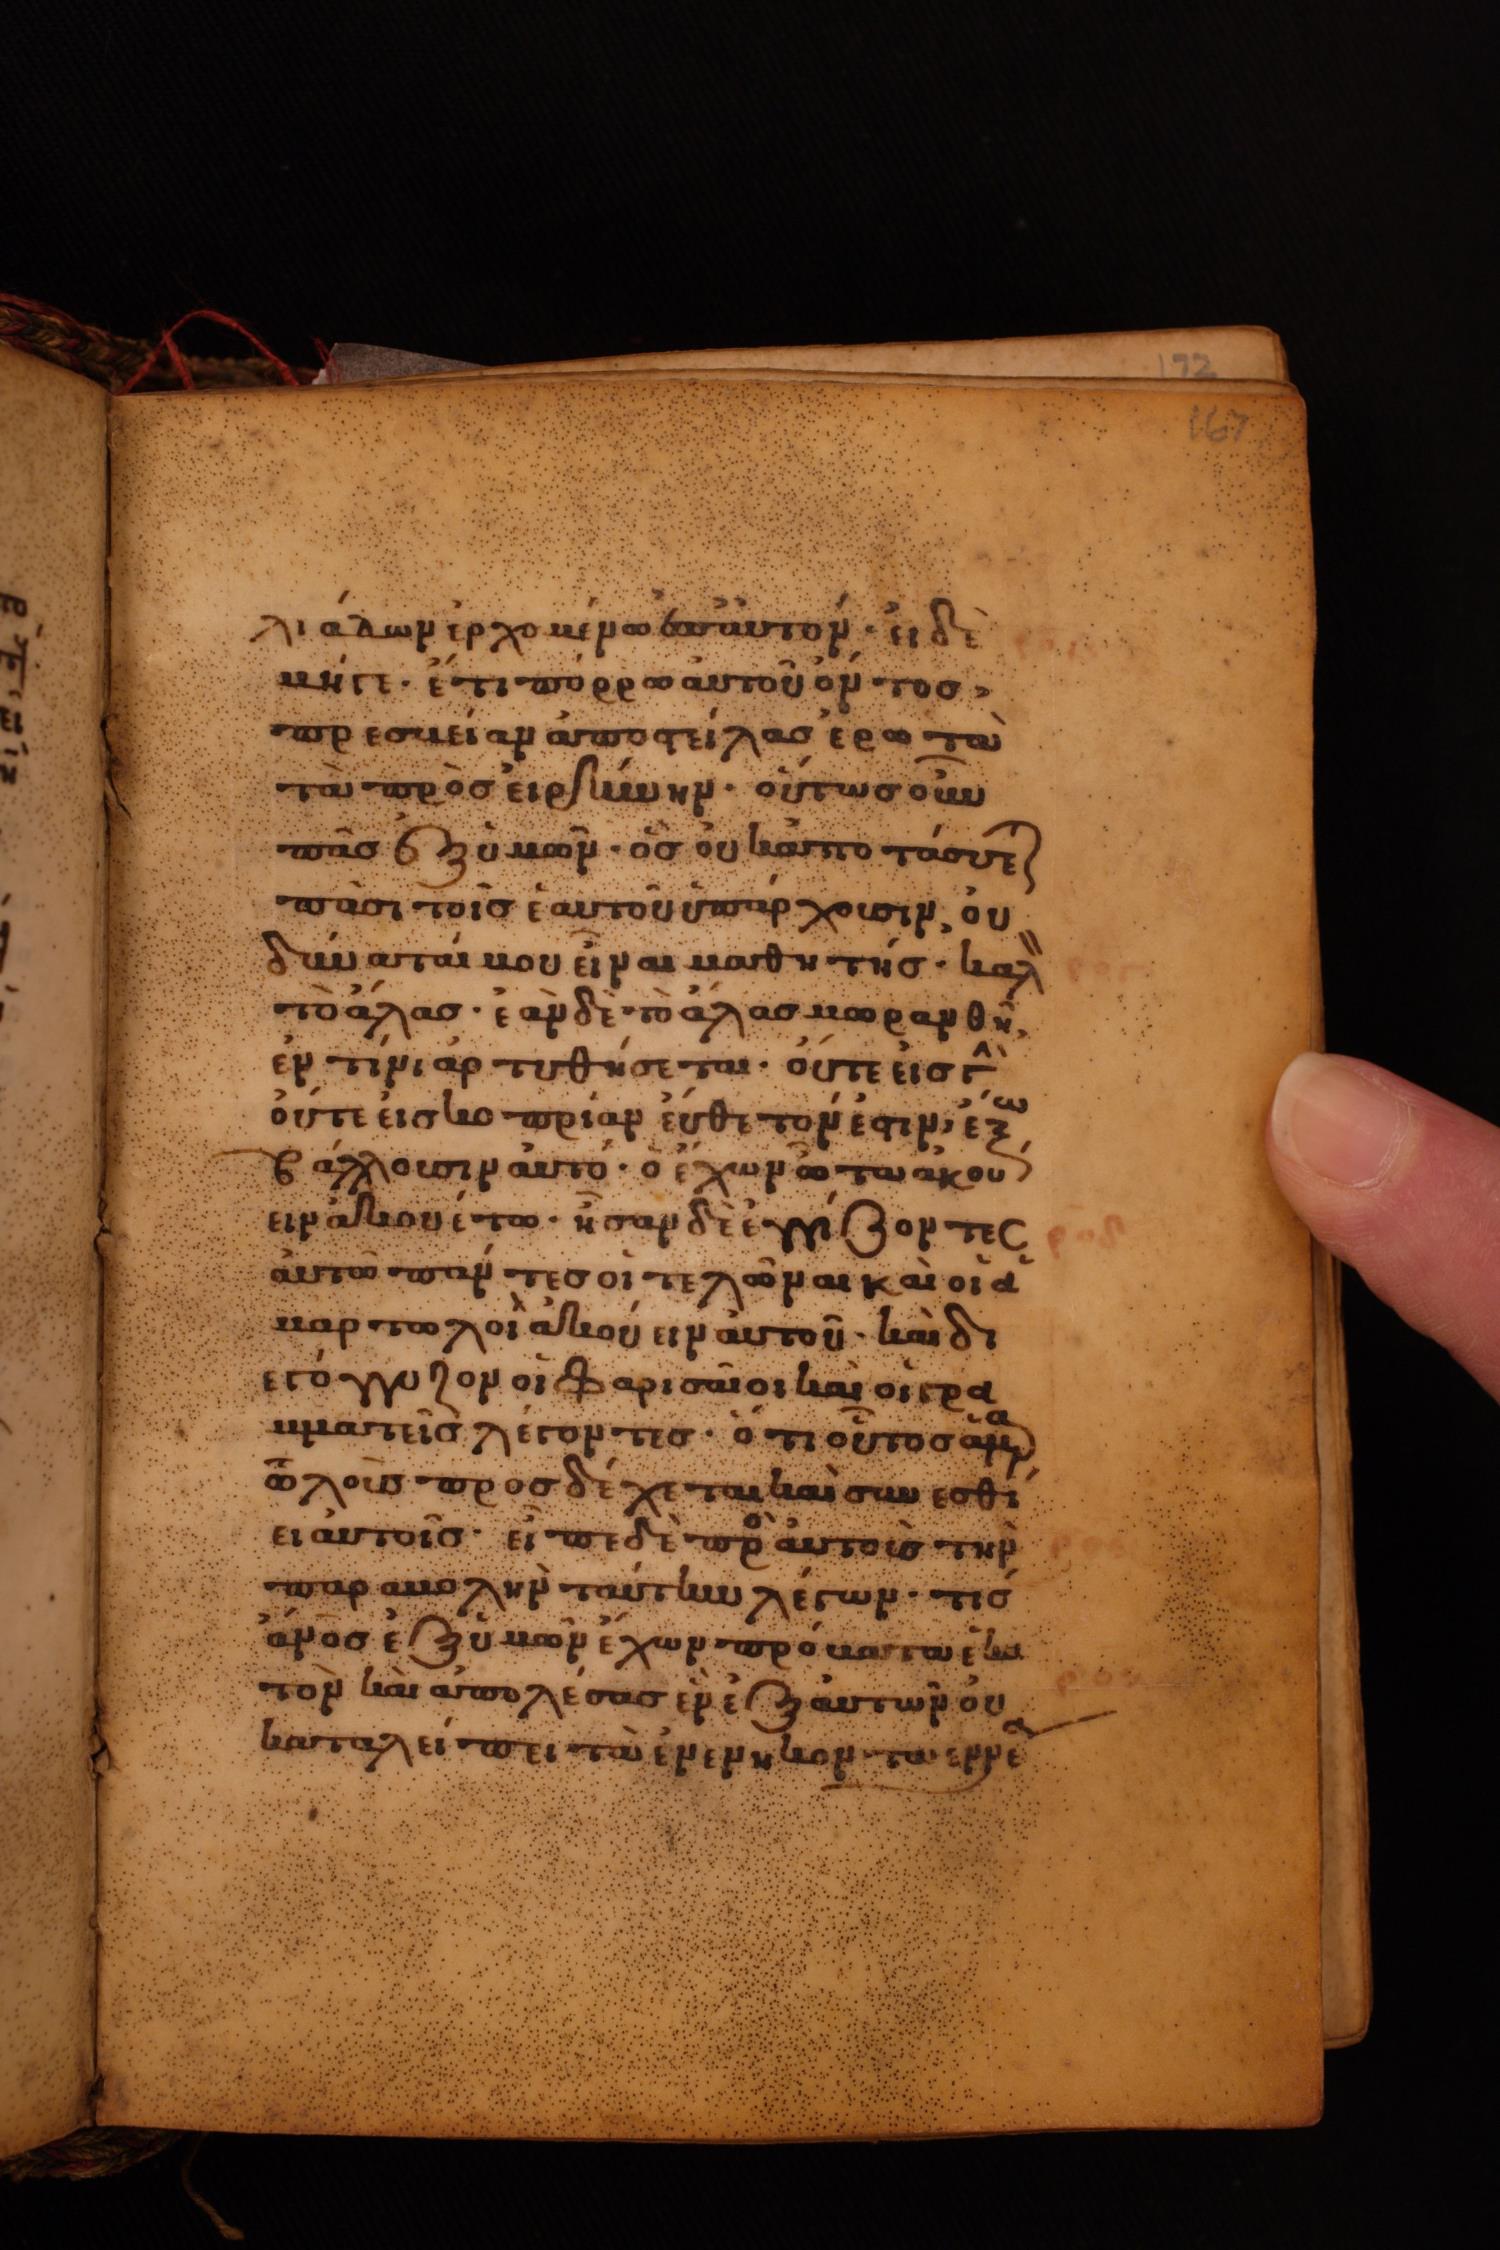 172
167
λιάδων ἐρχομένω ἐπ αὐτόν· εἰ δὲ
μήγε· ἔτι πόρρω αὐτοῦ ὄντος,
πρεσβείαν ἀποστείλας ἐρωτὰ
τὰ πρὸς εἰρήνην· οὕτως οὖν
πᾶς ἐξ ὑμῶν· ὃς οὐκ ἀποτάσσεται
πᾶσι τοῖς ἑαυτοῦ ὑπάρχουσιν, οὐ
δύναταί μου εἶναι μαθητής· καλὸν
τὸ ἅλας· ἐὰν δὲ τὸ ἅλας μωρανθῆ,
ἐν τίνι ἀρτυθήσεται· οὔτε εἰς γῆν
οὔτε εἰς κοπρίαν εὔθετόν ἐστιν, ἔξω
βάλλουσιν αὐτό· ὁ ἔχων ὦτα ἀκού
ειν ἀκουέτω· ἦσαν δὲ ἐγγίζοντες
αὐτῶ πάντες οἱ τελῶναι καὶ οἱ ἁ
μαρτωλοὶ ἀκούειν αὐτοῦ· καὶ δι
εγόγγυζον οἱ φαρισαῖοι καὶ οἱ γρα
μματεῖς λέγοντες· ὅτι οὗτος ἁμαρ
τωλοὺς προσδέχεται καὶ συνεσθί
ει αὐτοῖς· εἶπε δὲ πρὸς αὐτοὺς τὴν
παραβολὴν ταύτην λέγων· τίς
ἄνος ἐξ ὑμῶν ἔχων πρόβατα ἑκα
τὸν καὶ ἀπολέσας ἓν ἐξ αὐτῶν οὐ
καταλείπει τὰ ἐνενήκον τα ἐννέα